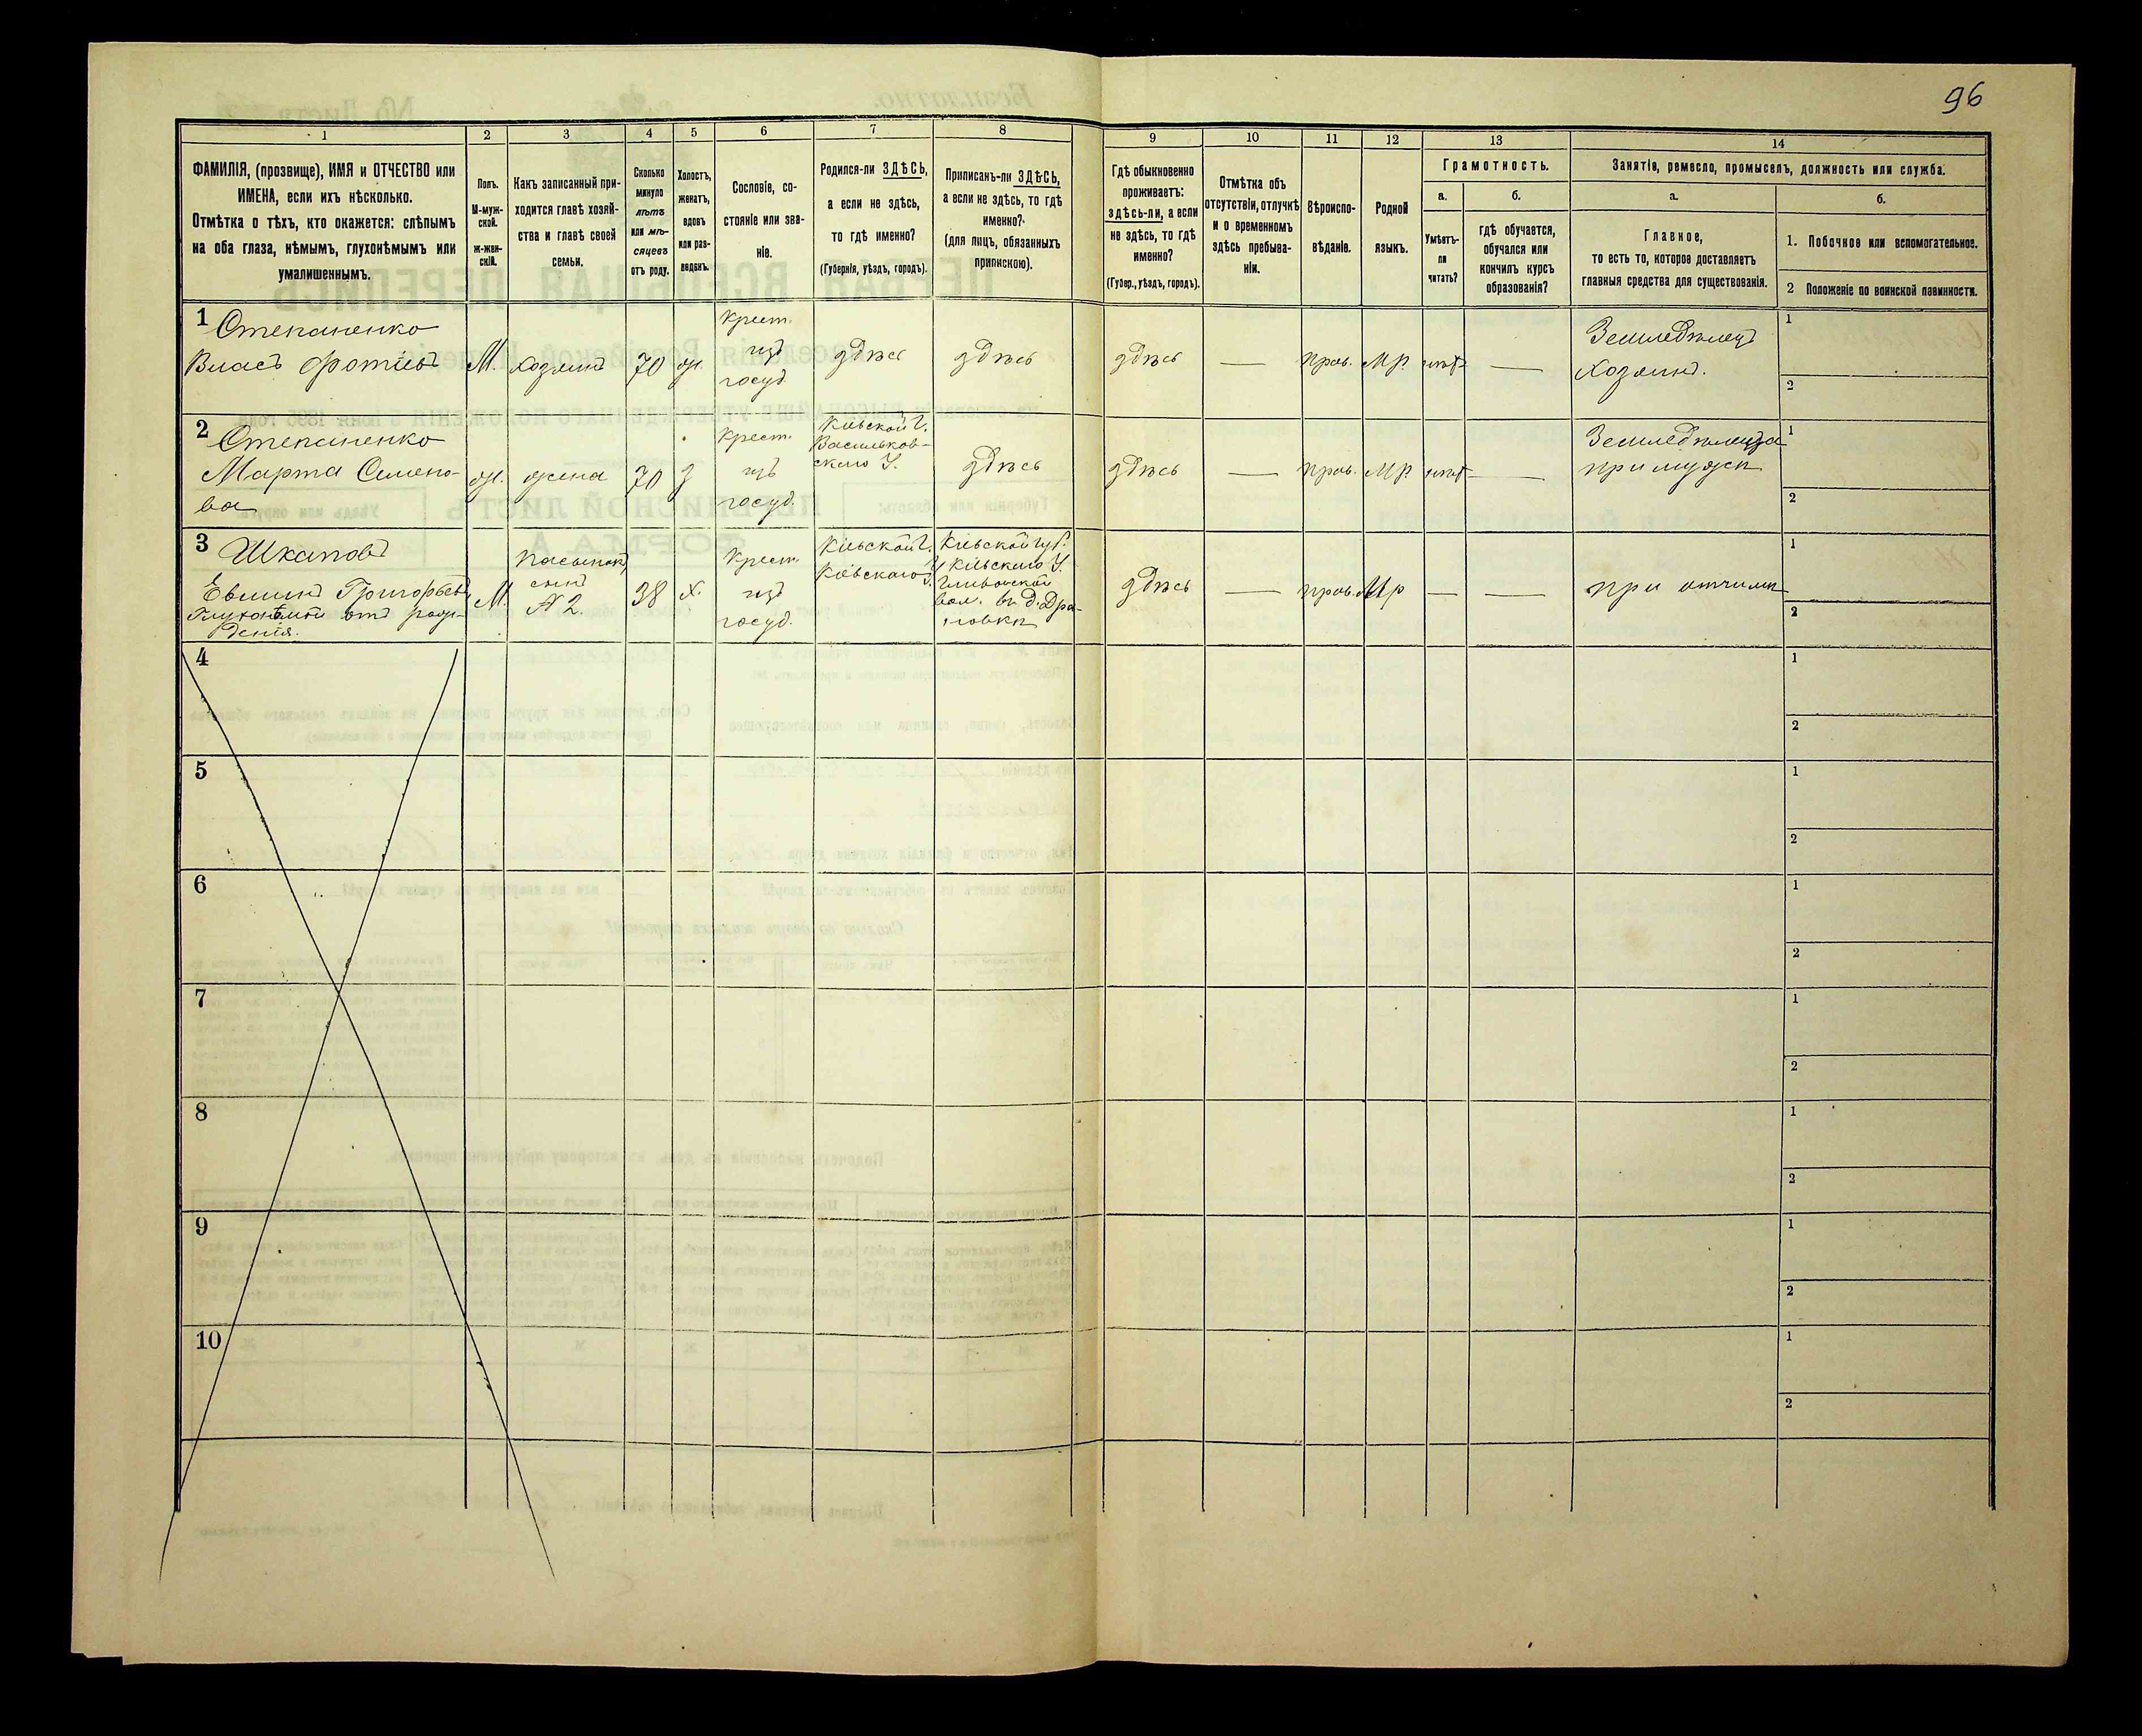 96
1
2
3
4
5
6
7
8
9
10
11
12
13
14
ФАМИЛІЯ, (прозвище), ИМЯ и ОТЧЕСТВО или
ИМЕНА, если ихъ нѣсколько.
Отмѣтка о тѣхъ, кто окажется: слѣпымъ
на оба глаза, нѣмымъ, глухонѣмымъ или
умалишеннымъ.
Полъ.
М-муж-
ской.
ж-жен-
скій.
Какъ записанный при-
ходится главѣ хозяй-
ства и главѣ своей
семьи.
Сколько
минуло
лѣтъ
или мѣ-
сяцевъ
отъ роду.
Холостъ,
женатъ,
вдовъ
или раз-
веденъ.
Сословіе, со-
стояніе или зва-
ніе.
Родился-ли ЗДѢСЬ,
а если не здѣсь,
то гдѣ именно?
(Губернія, уѣздъ, городъ).
Приписанъ-ли ЗДѢСЬ,
а если не здѣсь, то гдѣ
именно?
(для лицъ, обязанныхъ
припискою).
Гдѣ обыкновенно
проживаетъ:
здѣсь-ли, а если
не здѣсь, то гдѣ
именно?
(Губер., уѣздъ, городъ).
Отмѣтка объ
отсутствіи, отлучкѣ
и о временномъ
здѣсь пребыва-
ніи.
Вѣроиспо-
вѣданіе.
Родной
языкъ.
Грамотность.
а.
б.
Умѣетъ-
ли
читать?
гдѣ обучается,
обучался или
кончилъ курсъ
образованія?
Занятіе, ремесло, промыселъ, должность или служба.
а.
б.
Главное,
то есть то, которое доставляетъ
главныя средства для существованія.
1. Побочное или вспомогательное.
2 Положеніе по воинской повинности.
1 Степаненко
Власъ Фотіевъ
М.
хозяинъ
70
ж.
крест.
изъ
госуд.
здѣсь
здѣсь
здѣсь
—
прав.
МР.
нѣтъ
—
Земледѣлецъ
хозяинъ.
1
2
2 Степаненко
Марта Семено-
ва
ж.
жена
70
з
крест.
изъ
госуд.
Кіевской Г.
Васильков-
скаго У.
здѣсь
здѣсь
—
прав.
МР.
нѣтъ
—
Земледѣлица
при мужѣ
1
2
3 Шкаповъ
Григорьевъ
Глухонѣмой отъ рож-
денія.
М.
пасынок,
сынъ
N 2.
38
х.
крест.
изъ
госуд.
Кіевской Г.
Кіевскаго У.
Кіевской губ.
Кіевскаго У.
вол. въ д.
здѣсь
—
прав.
Мр
—
—
при отчимѣ
1
2
4
1
2
5
1
2
6
1
2
7
1
2
8
1
2
9
1
2
10
1
2